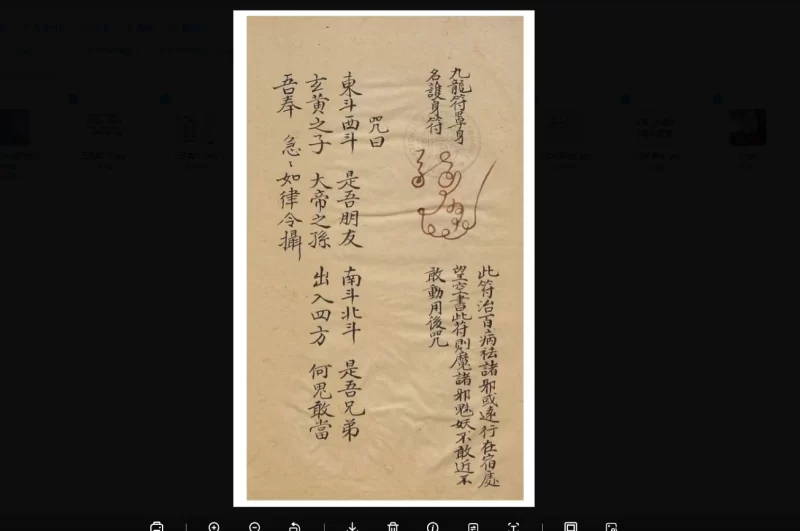 九龍符單身
名護身符
此符治百病祛諸邪或遠行在宿處
望空書此符則魔諸邪鬼妖不敢近不
敢動用後咒
咒曰
東斗西斗 是吾朋友 南斗北斗 是吾兄弟
玄黃之子 大帝之孫 出入四方 何鬼敢當
吾奉 急〻如律令攝